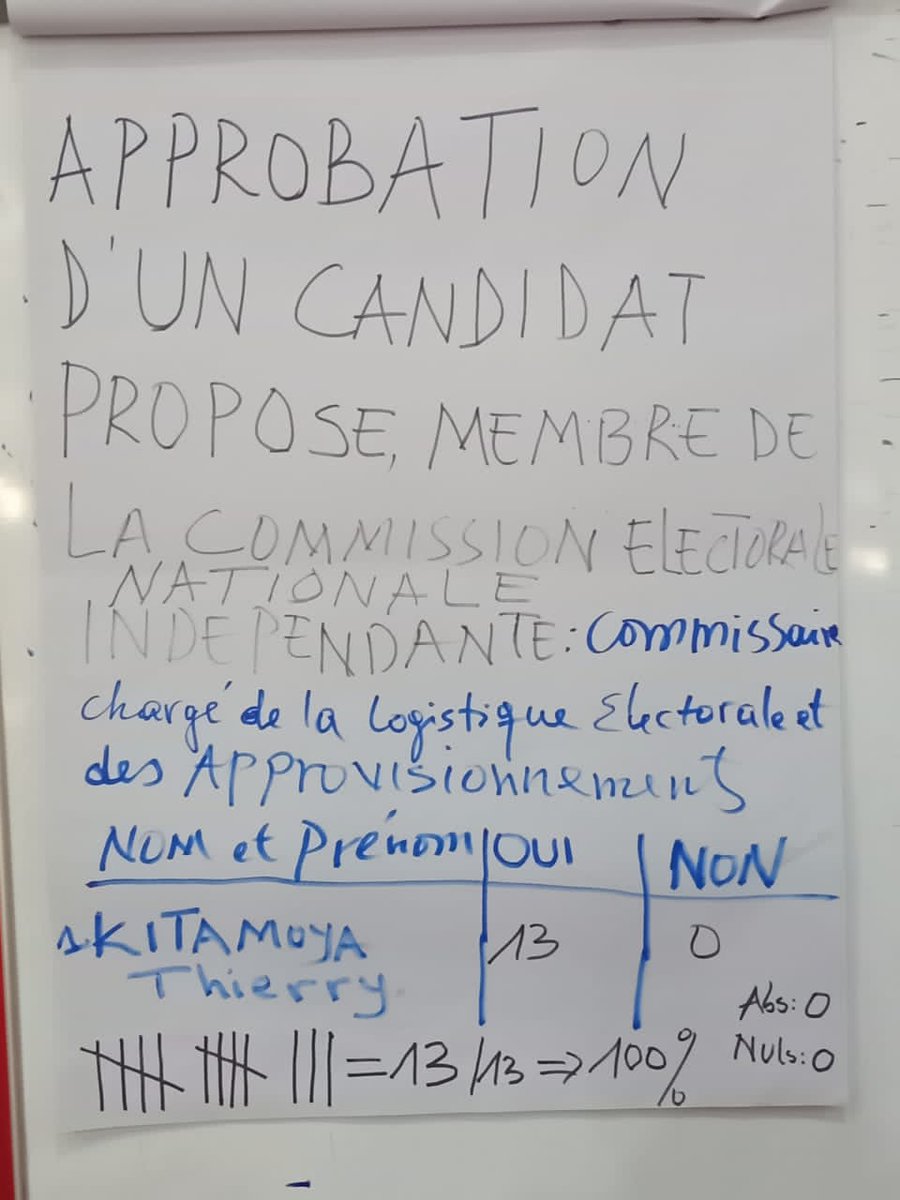 APPROBATION
D'UN CANDIDAT
PROPOSE, MEMBRE DE
LA COMMISSION ELECTORALE
NATIONALE
INDEPENDANTE: Commissaire
chargé de la Logistique Electorale et
des Approvisionnements
NOM et Prénom OUI NON
1. KITAMOYA 13 0
Thierry
Abs: 0
= 13/13 => 100%
Nuls: 0